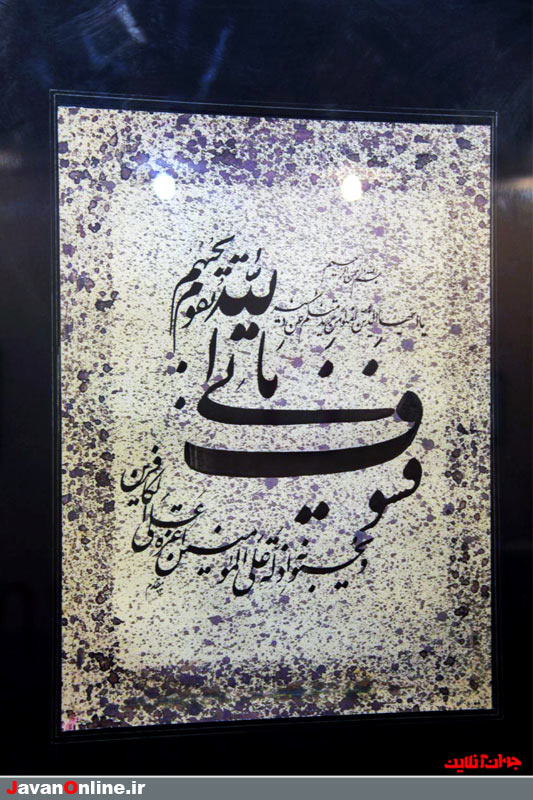 بسم الله الرحمن الرحیم
یا ایها الذین آمنوا من یرتد منکم عن دینه
فسوف یاتی الله بقوم یحبهم
و یحبونه اذلة علی المومنین اعزة علی الکافرین
جوان آنلاین
JavanOnline.ir